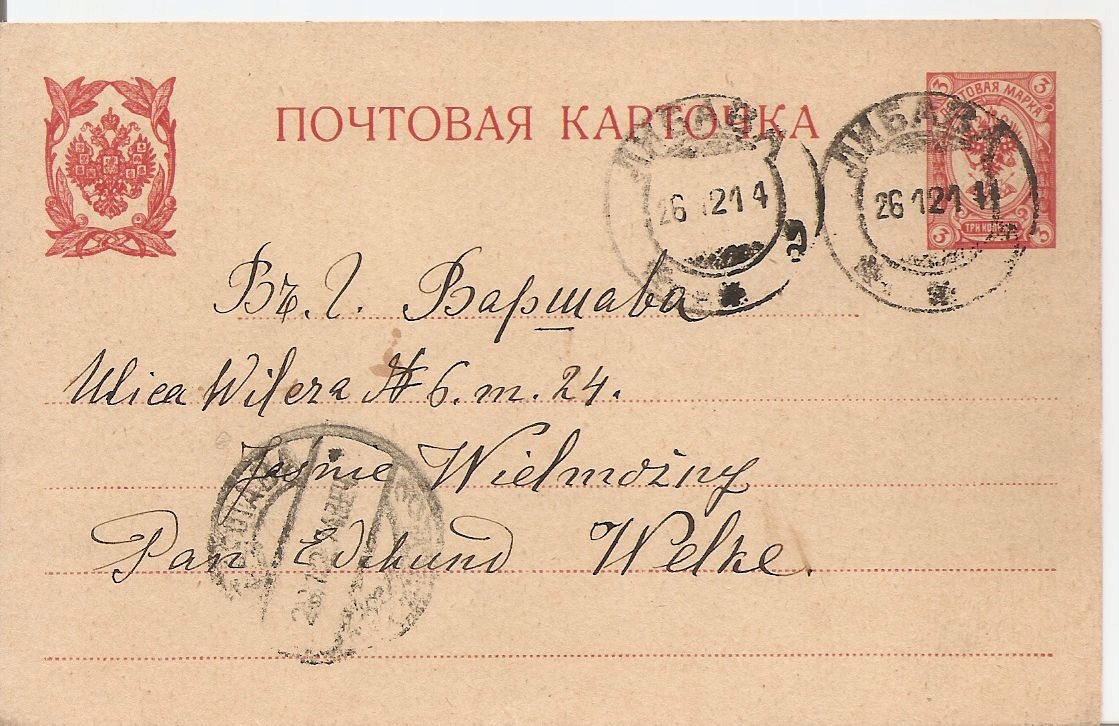 ПОЧТОВАЯ КАРТОЧКА
3 3
ПОЧТОВАЯ МАРКА
ТРИ КОП.
3 3
ЛИБАВА
26 1 21 4
ЛИБАВА
26 1 21 11
Въ. Г. Варшава
Ulica Wilcza № 6. m. 24.
Jaśnie Wielmożny
Pan Edmund Welke.
ВАРШАВА